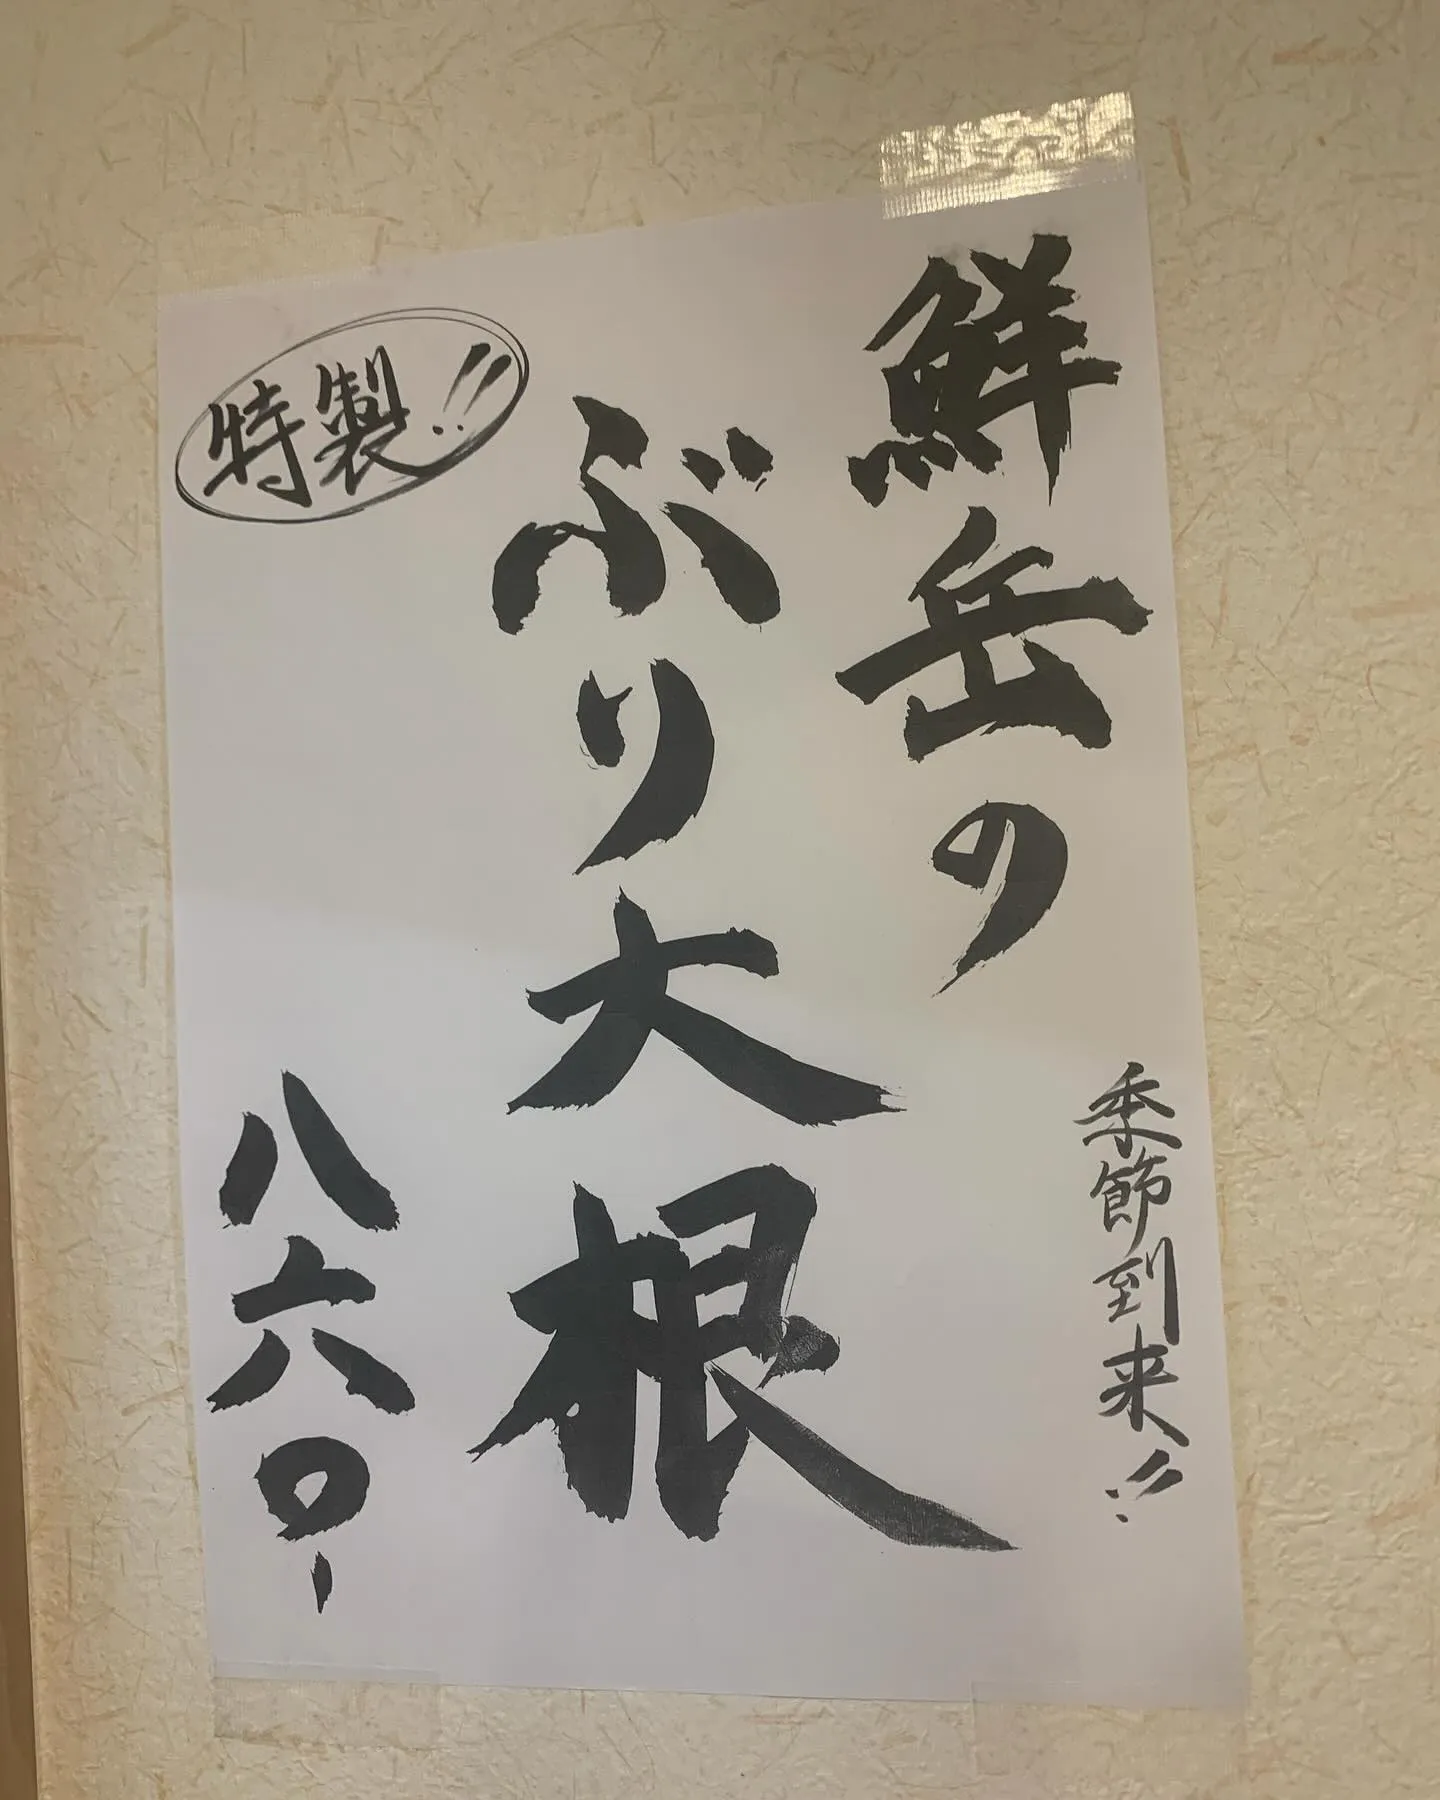 鮮岳の
季節到来!!
ぶり大根
特製!!
八六〇